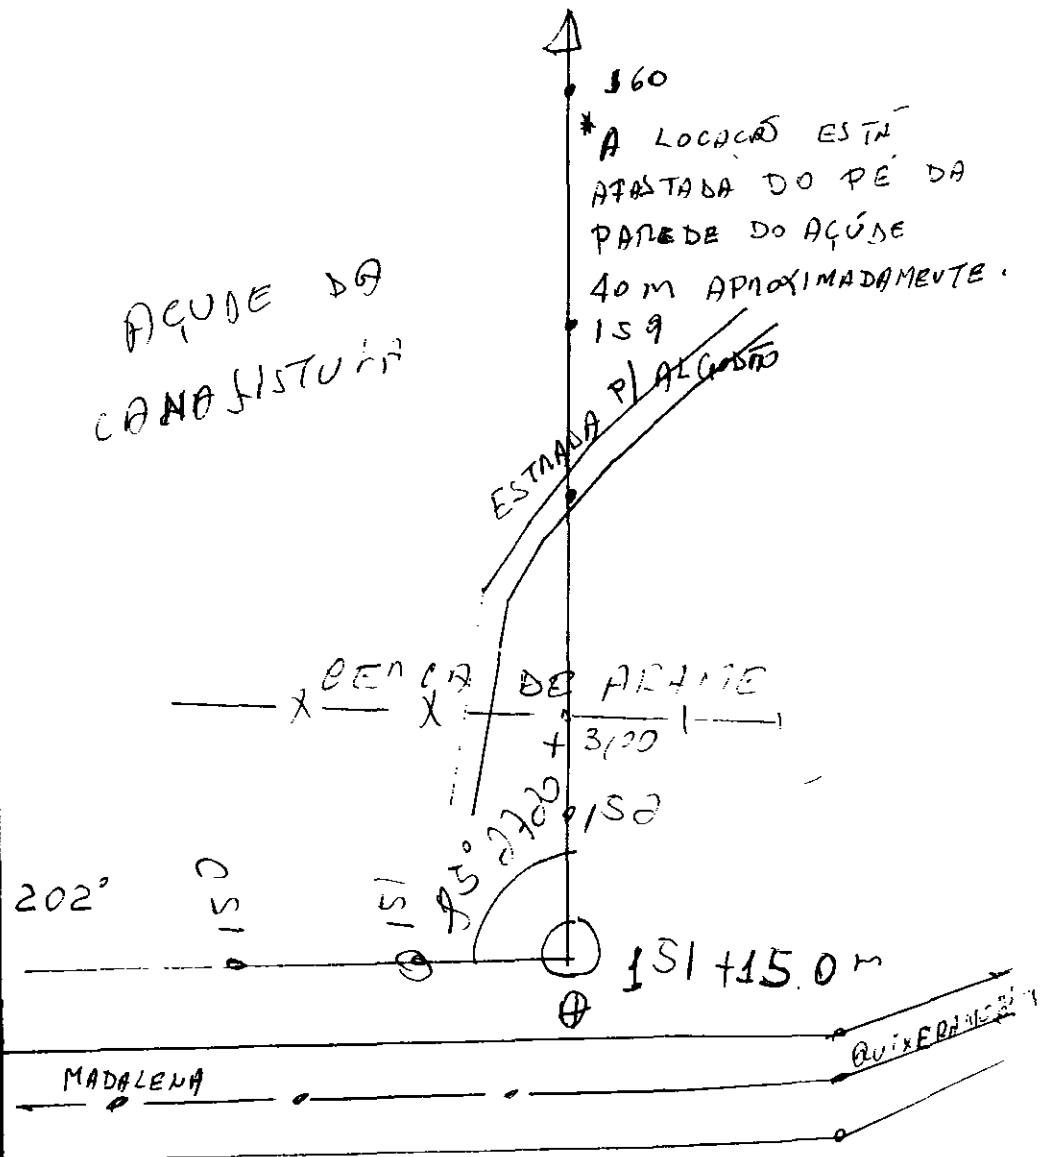 160
* A LOCAÇÃO ESTÁ
AFASTADA DO PÉ DA
PAREDE DO AÇÚDE
40 m APROXIMADAMENTE.
159
AÇUDE DA
CANAFISTULA
ESTRADA P/ ALGODÃO
CERCA DE ARAME
+ 3,00
152
95° 27'20
202°
150
151
151 +15.0 m
MADALENA
QUIXERAMOBIM